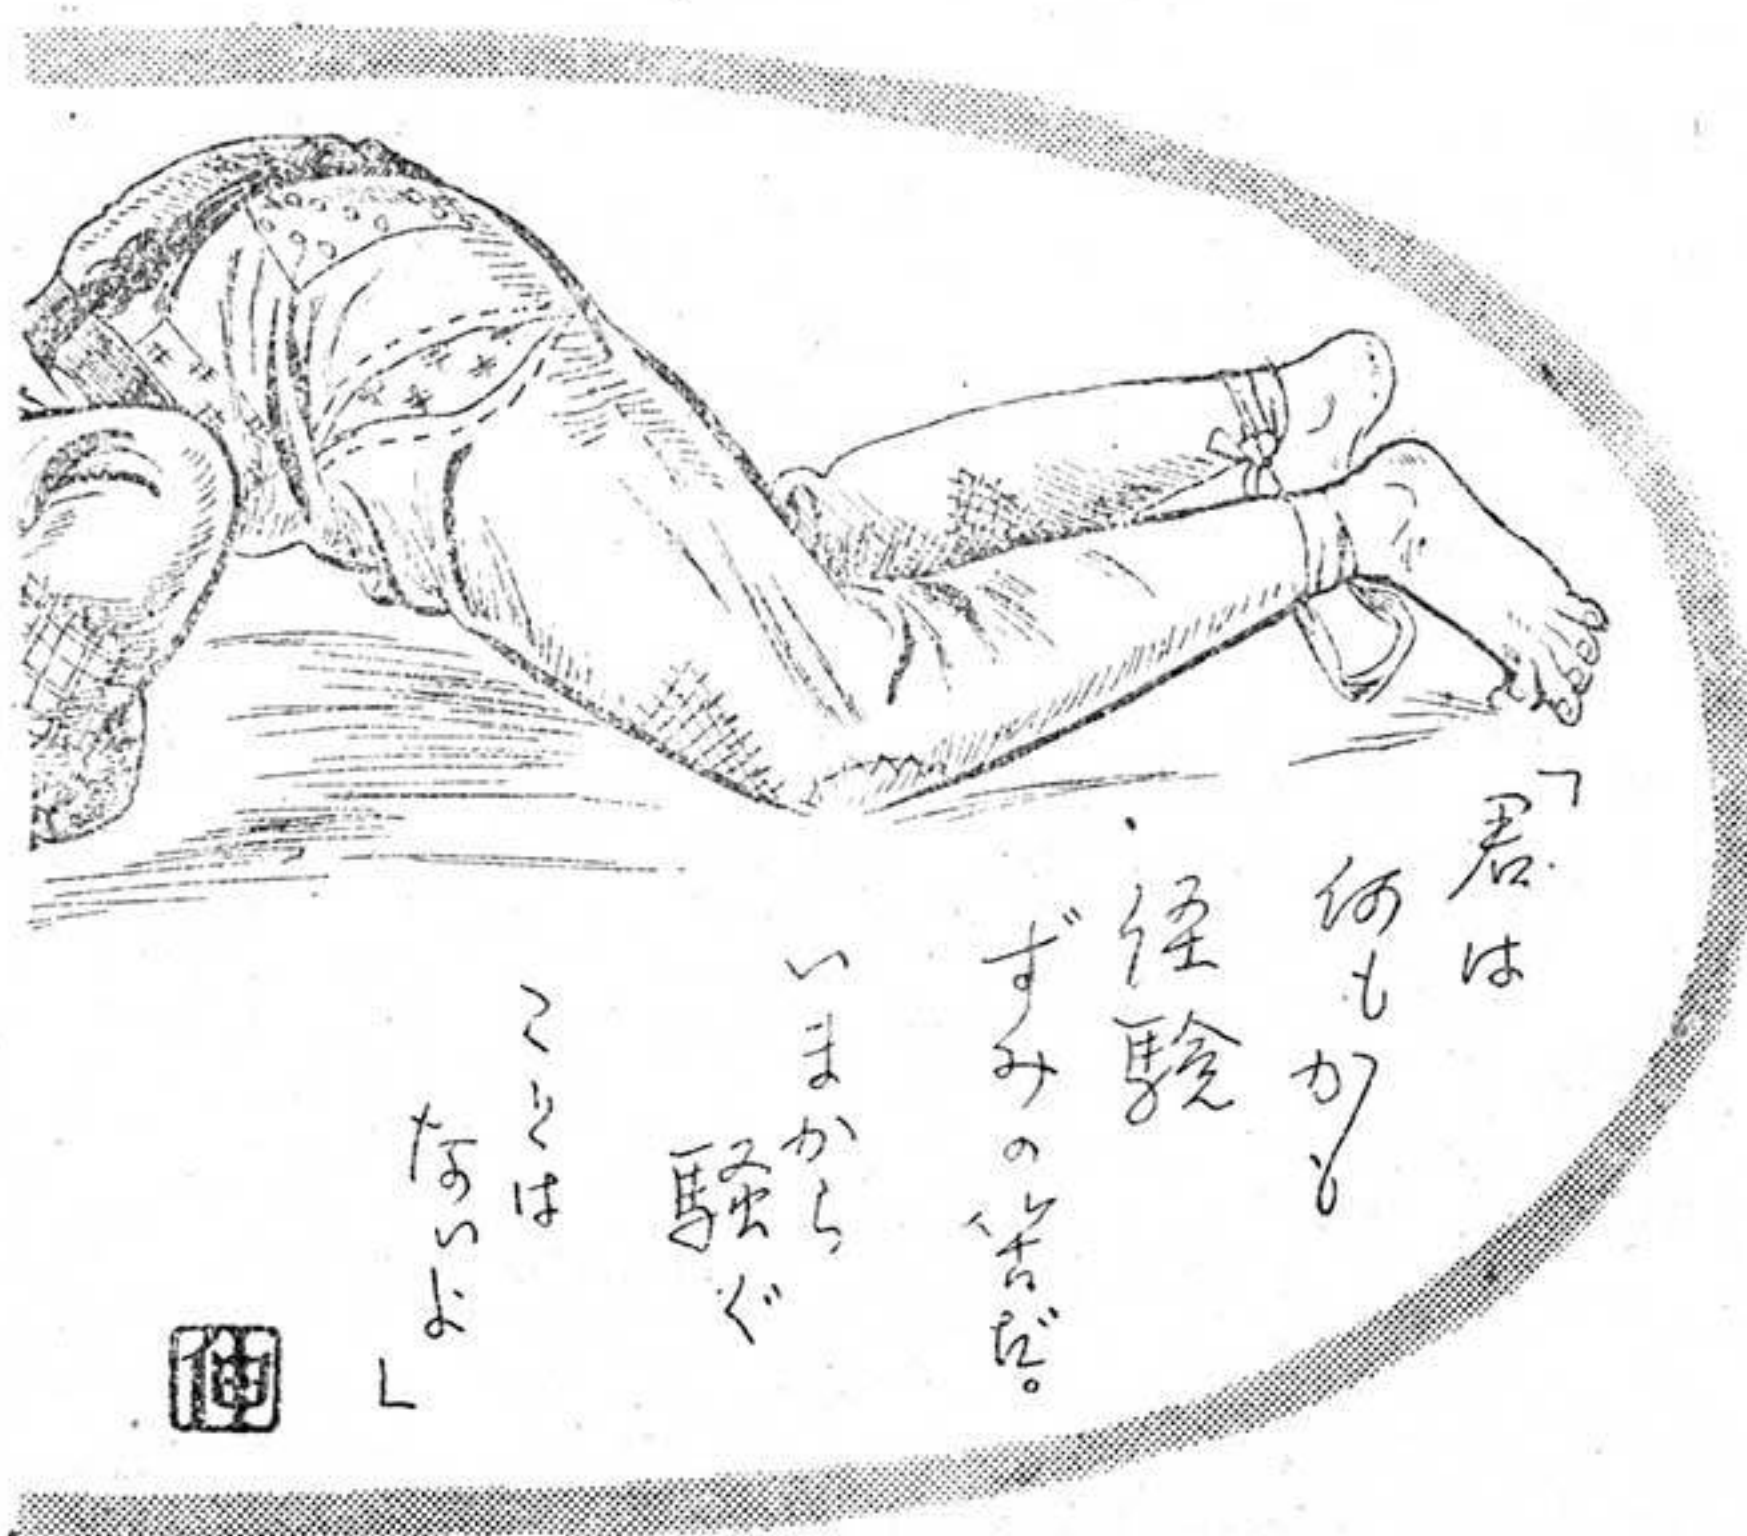 「君は
何もかも
経験
ずみの筈だ。
いまから
騒ぐ
ことは
ないよ」
伸